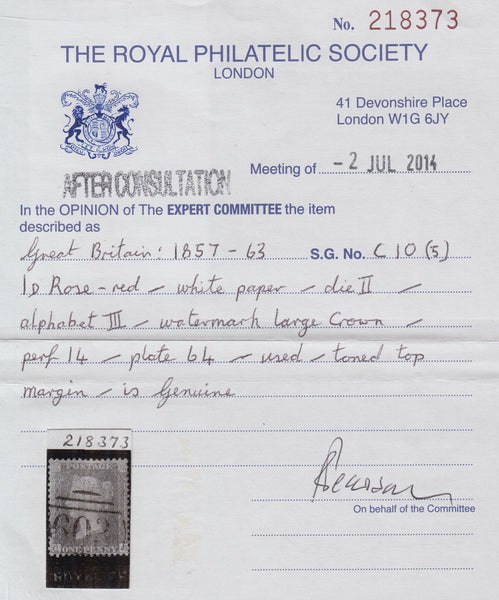 No. 218373
THE ROYAL PHILATELIC SOCIETY
LONDON
41 Devonshire Place
London W1G 6JY
Meeting of - 2 JUL 2014
AFTER CONSULTATION
In the OPINION of The EXPERT COMMITTEE the item
described as
Great Britain: 1857-63 S.G. No. C10(5)
1D Rose-red - white paper - die II -
alphabet III - watermark large Crown -
perf 14 - plate 64 - used - toned top
margin - is Genuine
218373
POSTAGE
ONE PENNY
Pearson
On behalf of the Committee